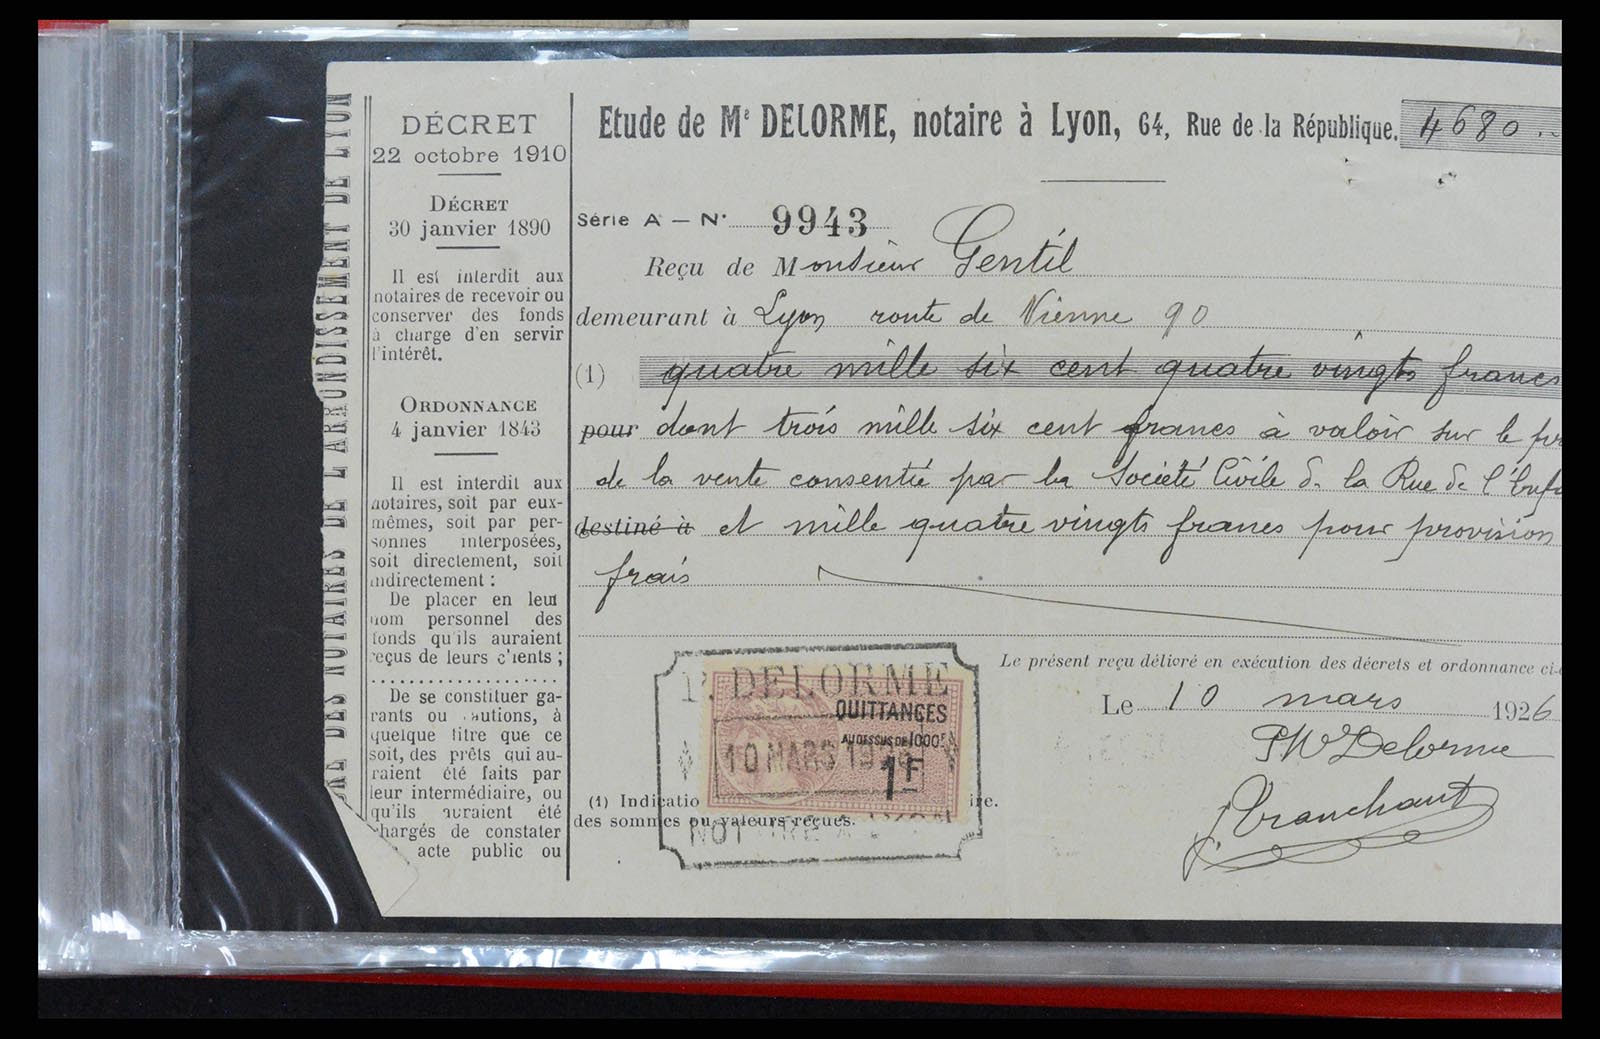 DES NOTAIRES DE L'ARRONDISSEMENT DE LYON
DÉCRET
22 octobre 1910
DÉCRET
30 janvier 1890
Il est interdit aux
notaires de recevoir ou
conserver des fonds
à charge d'en servir
l'intérêt.
ORDONNANCE
4 janvier 1843
Il est interdit aux
notaires, soit par eux-
mêmes, soit par per-
sonnes interposées,
soit directement, soit
indirectement :
De placer en leur
nom personnel des
fonds qu'ils auraient
reçus de leurs clients ;
De se constituer ga-
rants ou cautions, à
quelque titre que ce
soit, des prêts qui au-
raient été faits par
leur intermédiaire, ou
qu'ils auraient été
chargés de constater
acte public ou
Etude de Me DELORME, notaire à Lyon, 64, Rue de la République. 4680
Série A — N° 9943
Reçu de Monsieur Gentil
demeurant à Lyon route de Vienne 90
(1) quatre mille six cent quatre vingts francs
pour dont trois mille six cent francs à valoir sur le
de la vente consentie par la Société Civile de la Rue de
destiné à et mille quatre vingts francs pour provision
frais
Le présent reçu délivré en exécution des décrets et ordonnance ci-
Le 10 mars 1926
Delorme
Tranchant
P. DELORME
QUITTANCES
AU DESSUS DE 1000F
10 MARS 1926
1F
NOTAIRE A
(1) Indicatio
ire.
des sommes ou valeurs reçues.